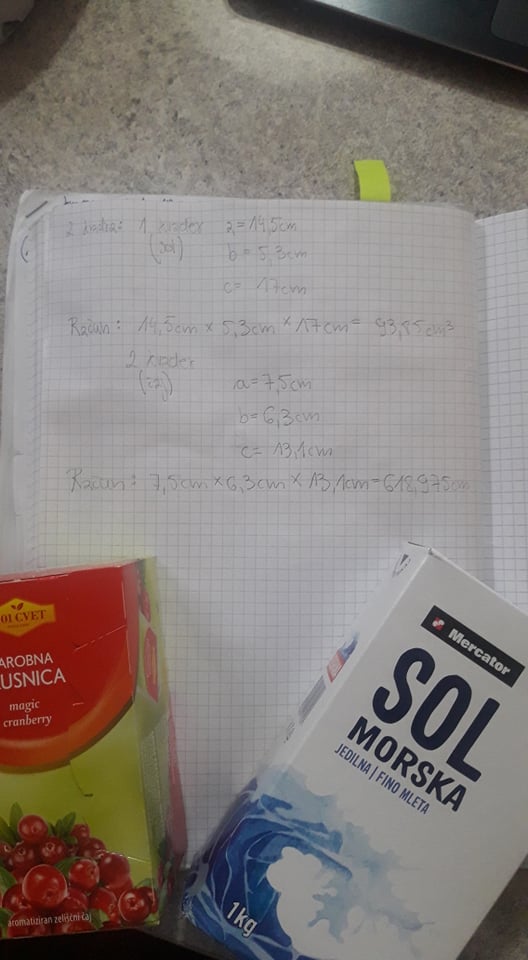 2 kvadra: 1. kvader a = 14,5cm
(sol) b = 5,3cm
c = 17cm
Račun: 14,5cm × 5,3cm × 17cm = 93,85cm³
2 kvader
(čaj) a = 7,5cm
b = 6,3cm
c = 13,1cm
Račun: 7,5cm × 6,3cm × 13,1cm = 618,975cm
01 CVET
AROBNA
USNICA
magic
cranberry
aromatiziran zeliščni čaj
Mercator
SOL
MORSKA
JEDILNA | FINO MLETA
1kg